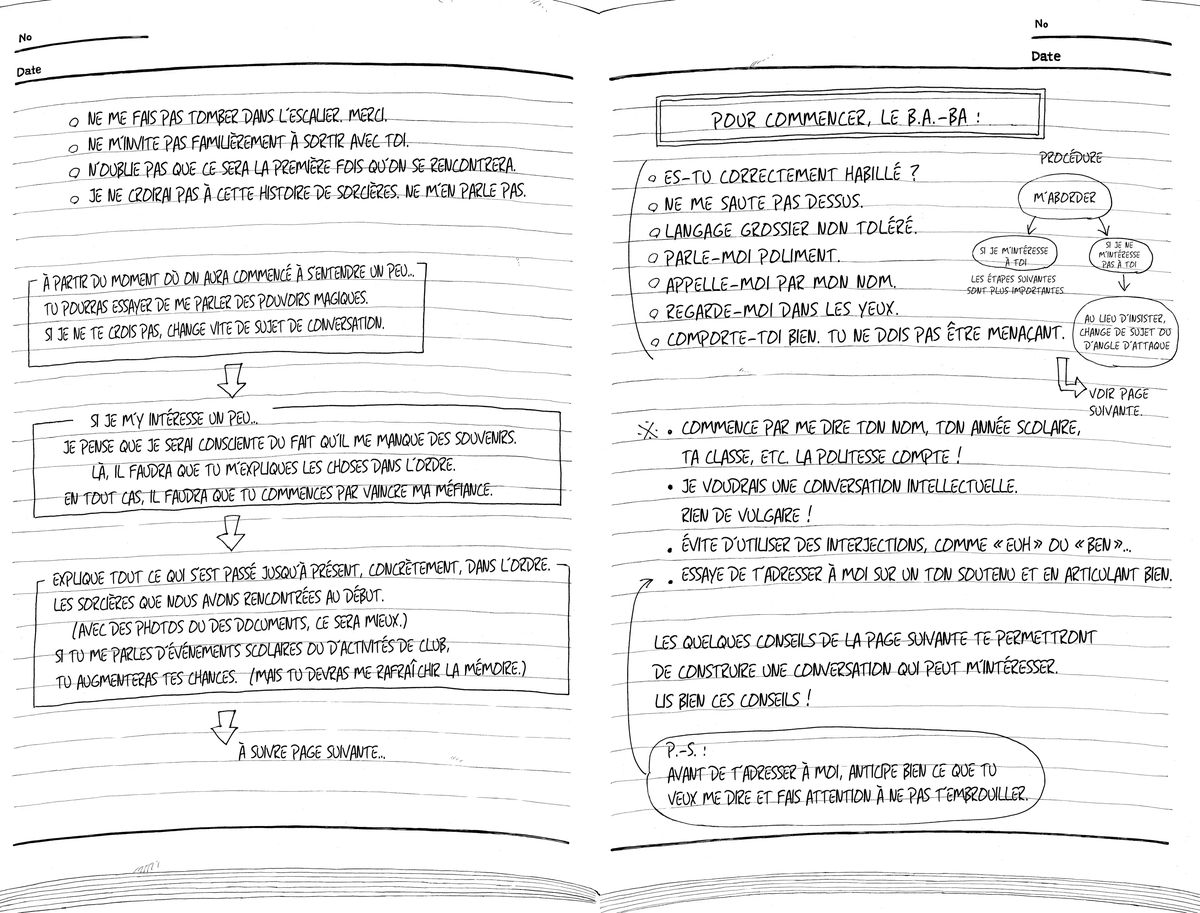 No
Date
POUR COMMENCER, LE B.A.-BA !
ES-TU CORRECTEMENT HABILLÉ ?
NE ME SAUTE PAS DESSUS.
LANGAGE GROSSIER NON TOLÉRÉ.
PARLE-MOI POLIMENT.
APPELLE-MOI PAR MON NOM.
REGARDE-MOI DANS LES YEUX.
COMPORTE-TOI BIEN. TU NE DOIS PAS ÊTRE MENAÇANT.
PROCÉDURE
M'ABORDER
SI JE M'INTÉRESSE
À TOI
LES ÉTAPES SUIVANTES
SONT PLUS IMPORTANTES.
SI JE NE
M'INTÉRESSE
PAS À TOI
AU LIEU D'INSISTER,
CHANGE DE SUJET OU
D'ANGLE D'ATTAQUE
VOIR PAGE
SUIVANTE.
※ • COMMENCE PAR ME DIRE TON NOM, TON ANNÉE SCOLAIRE,
TA CLASSE, ETC. LA POLITESSE COMPTE !
• JE VOUDRAIS UNE CONVERSATION INTELLECTUELLE.
RIEN DE VULGAIRE !
• ÉVITE D'UTILISER DES INTERJECTIONS, COMME « EUH » OU « BEN »...
• ESSAYE DE T'ADRESSER À MOI SUR UN TON SOUTENU ET EN ARTICULANT BIEN.
LES QUELQUES CONSEILS DE LA PAGE SUIVANTE TE PERMETTRONT
DE CONSTRUIRE UNE CONVERSATION QUI PEUT M'INTÉRESSER.
LIS BIEN CES CONSEILS !
P.-S. :
AVANT DE T'ADRESSER À MOI, ANTICIPE BIEN CE QUE TU
VEUX ME DIRE ET FAIS ATTENTION À NE PAS T'EMBROUILLER.
No
Date
NE ME FAIS PAS TOMBER DANS L'ESCALIER. MERCI.
NE M'INVITE PAS FAMILIÈREMENT À SORTIR AVEC TOI.
N'OUBLIE PAS QUE CE SERA LA PREMIÈRE FOIS QU'ON SE RENCONTRERA.
JE NE CROIRAI PAS À CETTE HISTOIRE DE SORCIÈRES. NE M'EN PARLE PAS.
À PARTIR DU MOMENT OÙ ON AURA COMMENCÉ À S'ENTENDRE UN PEU...
TU POURRAS ESSAYER DE ME PARLER DES POUVOIRS MAGIQUES.
SI JE NE TE CROIS PAS, CHANGE VITE DE SUJET DE CONVERSATION.
SI JE M'Y INTÉRESSE UN PEU...
JE PENSE QUE JE SERAI CONSCIENTE DU FAIT QU'IL ME MANQUE DES SOUVENIRS.
LÀ, IL FAUDRA QUE TU M'EXPLIQUES LES CHOSES DANS L'ORDRE.
EN TOUT CAS, IL FAUDRA QUE TU COMMENCES PAR VAINCRE MA MÉFIANCE.
EXPLIQUE TOUT CE QUI S'EST PASSÉ JUSQU'À PRÉSENT, CONCRÈTEMENT, DANS L'ORDRE.
LES SORCIÈRES QUE NOUS AVONS RENCONTRÉES AU DÉBUT.
(AVEC DES PHOTOS OU DES DOCUMENTS, CE SERA MIEUX.)
SI TU ME PARLES D'ÉVÉNEMENTS SCOLAIRES OU D'ACTIVITÉS DE CLUB,
TU AUGMENTERAS TES CHANCES. (MAIS TU DEVRAS ME RAFRAÎCHIR LA MÉMOIRE.)
À SUIVRE PAGE SUIVANTE...